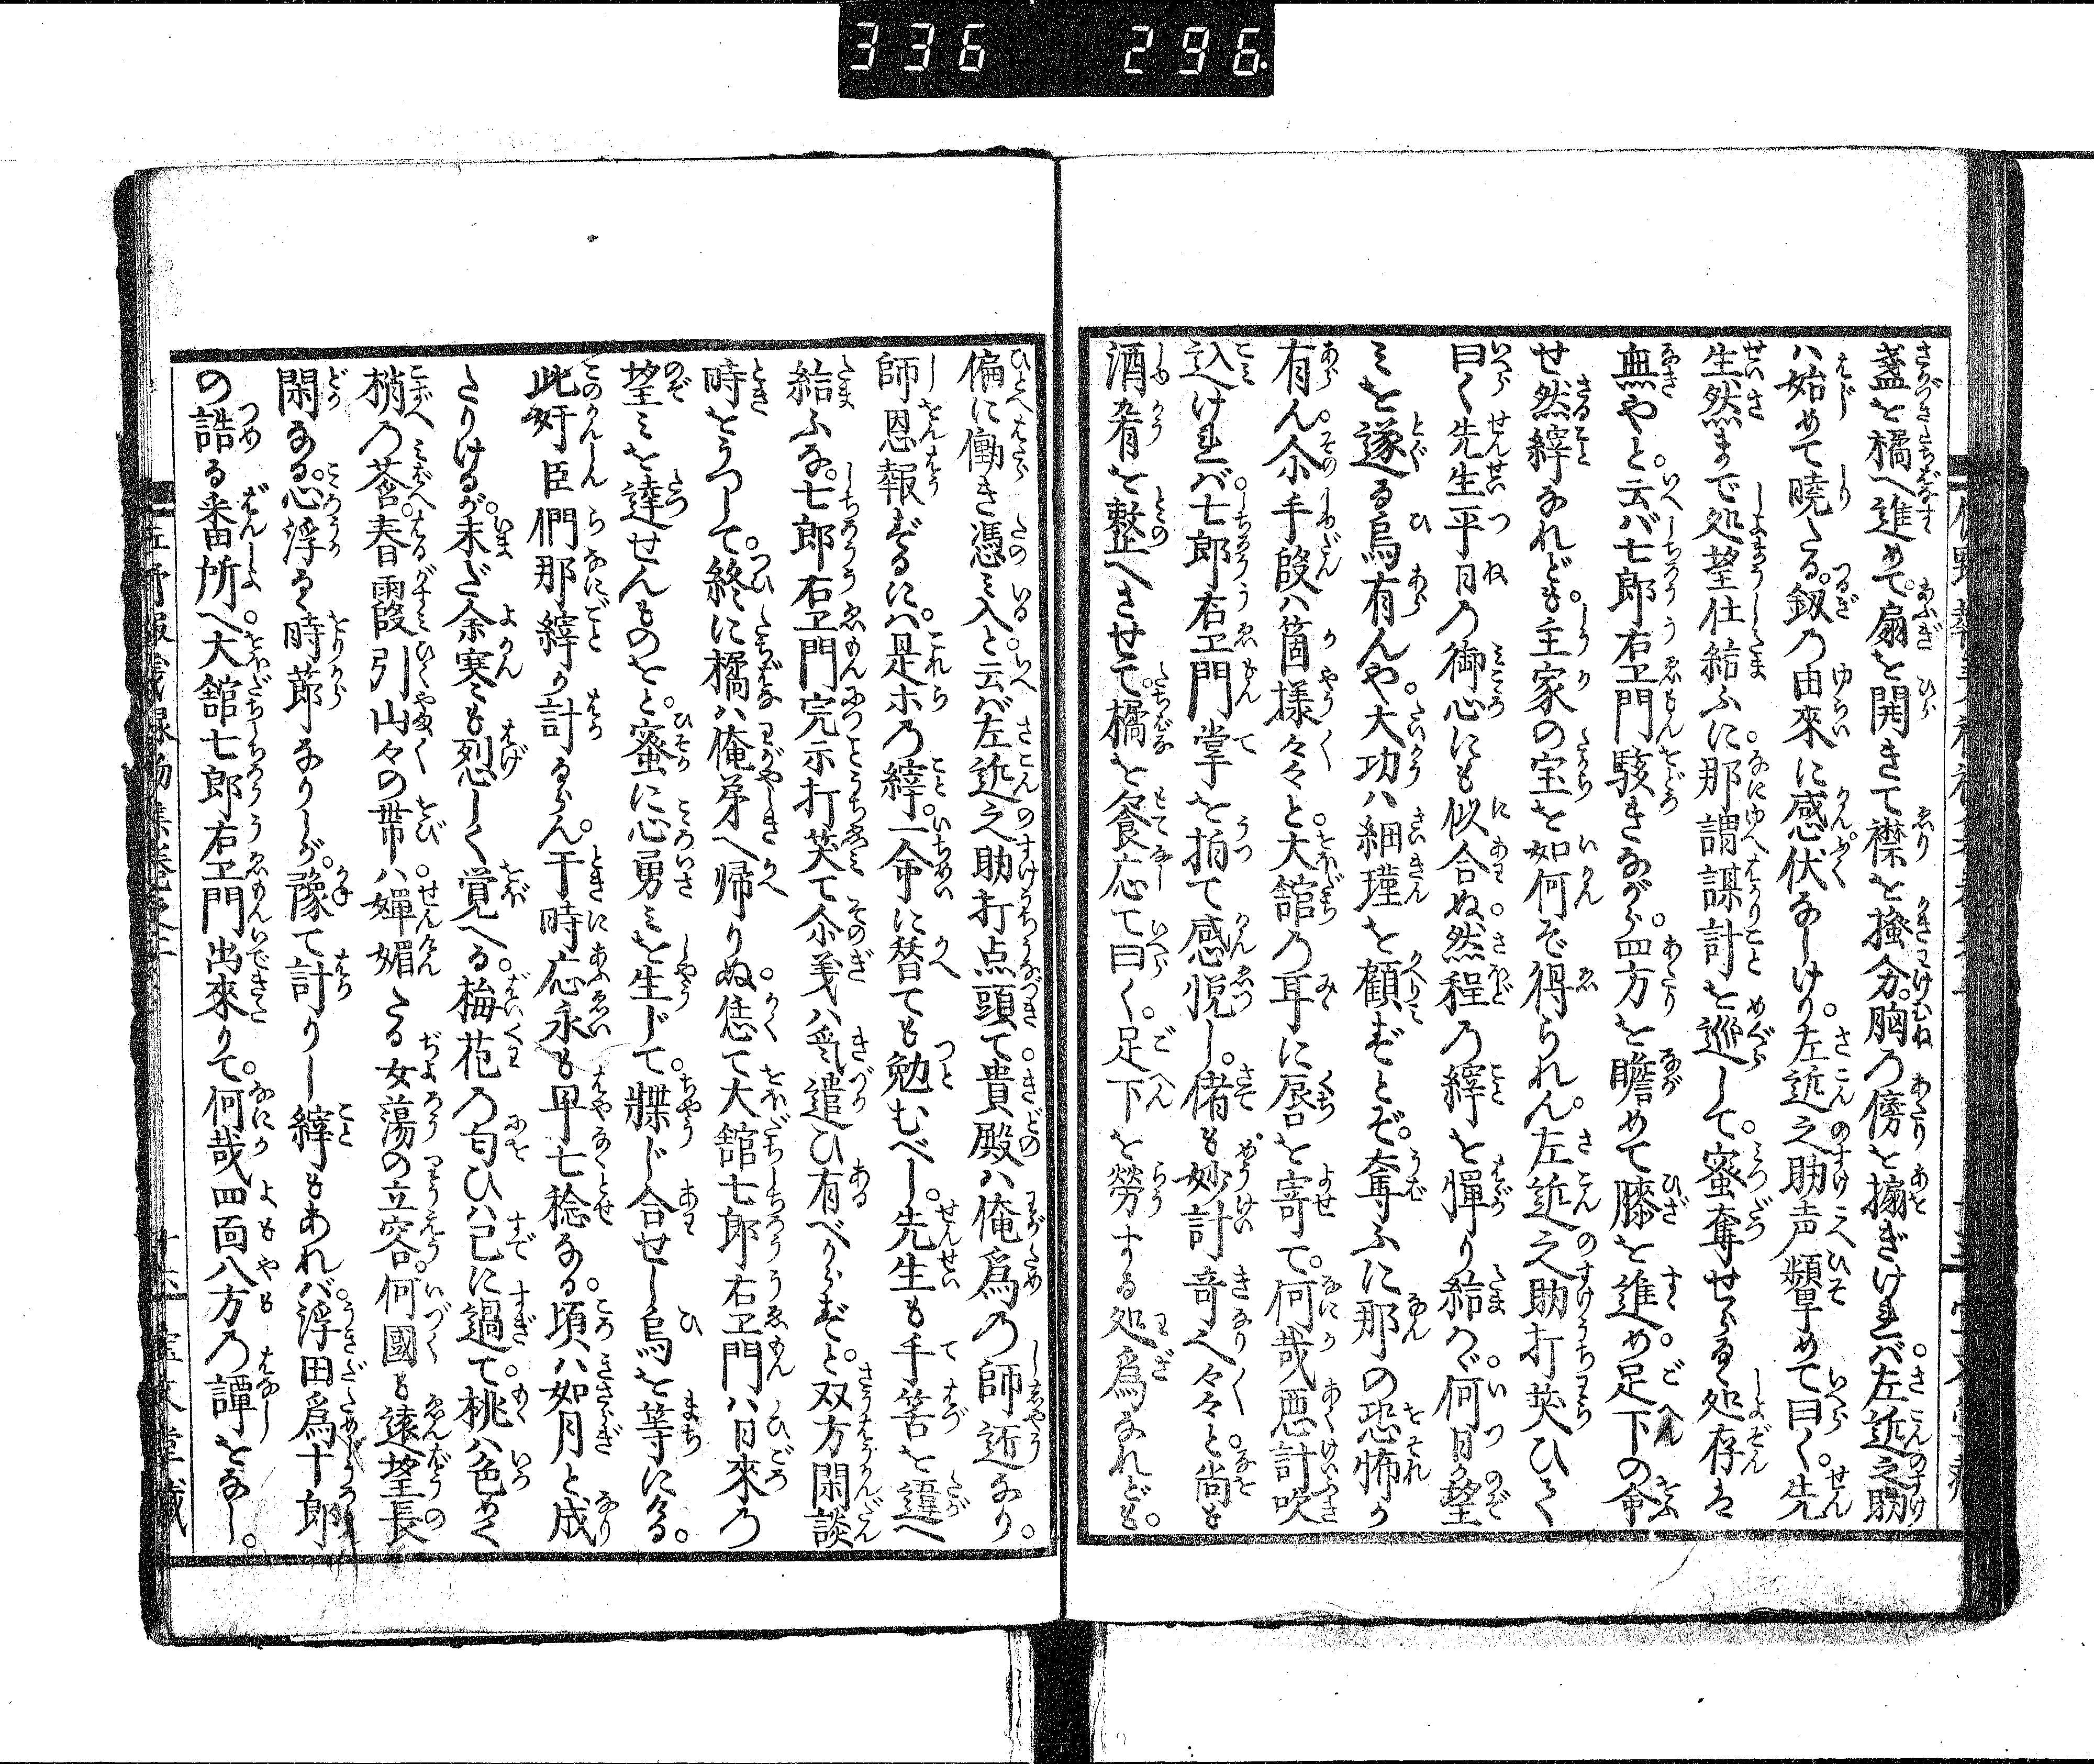 336 296
盞を橘へ進めて。扇を開きて襟を掻分。胸の傍を搧ぎければ。左近之助
ハ始めて曉たる。釼の由來に感伏なしけり。左近之助声顰めて曰く。先
生然まで処望仕給ふに。那謂謀計を巡らして。蜜奪せらるゝ処存は
無やと。云バ七郎右エ門駭きながら。四方を瞻めて膝を進め。足下の命
せ然縡なれども。主家の宝を如何ぞ得られん。左近之助打笑ひつゝ
曰く先生平日の御心にも似合ぬ。然程の縡を憚り給ハゞ。何日か望
ミを遂る烏有んや。大功ハ細瑾を顧ずとぞ。奪ふに那の恐怖か
有ん。尒手段ハ箇様々々と。大舘の耳に唇を寄て。何哉悪計吹
込ければ。七郎右エ門掌を拍て感悦し。偖も妙計竒〳〵々々と。尚も
酒肴を整へさせて。橘を饗応て曰く。足下を勞する処為なれども。
偏に働き憑ミ入と。云バ左近之助打点頭て。貴殿ハ俺為の師近なり。
師恩報ずるにハ。是ホの縡。一命に替ても勉むべし。先生も手筈を違へ
給ふな。七郎右エ門完尓打笑て尒義ハ氣遣ひ有べからずと。双方閑談
時をうつして。終に橘ハ俺弟へ帰りぬ。恁て大舘七郎右エ門ハ日來の
望ミを達せんものをと。蜜に心勇ミを生じて。牒じ合せし烏を等にける。
此奸臣們那縡か計るらん。干時応永も早七稔なる。頃ハ如月と成
たりけるが。未だ余寒も烈しく覚へる。梅花の匂ひハ已に過て。桃ハ色めく
梢の莟。春雨霞引山々の帶ハ。嬋媚たる女蕩の立容。何國も遠望長
閑なる。心浮るゝ時節なりしが。豫て計りし縡もあれバ。浮田為十郎
の詰る番所へ。大舘七郎右エ門出來りて。何哉四面八方の譚をなし。